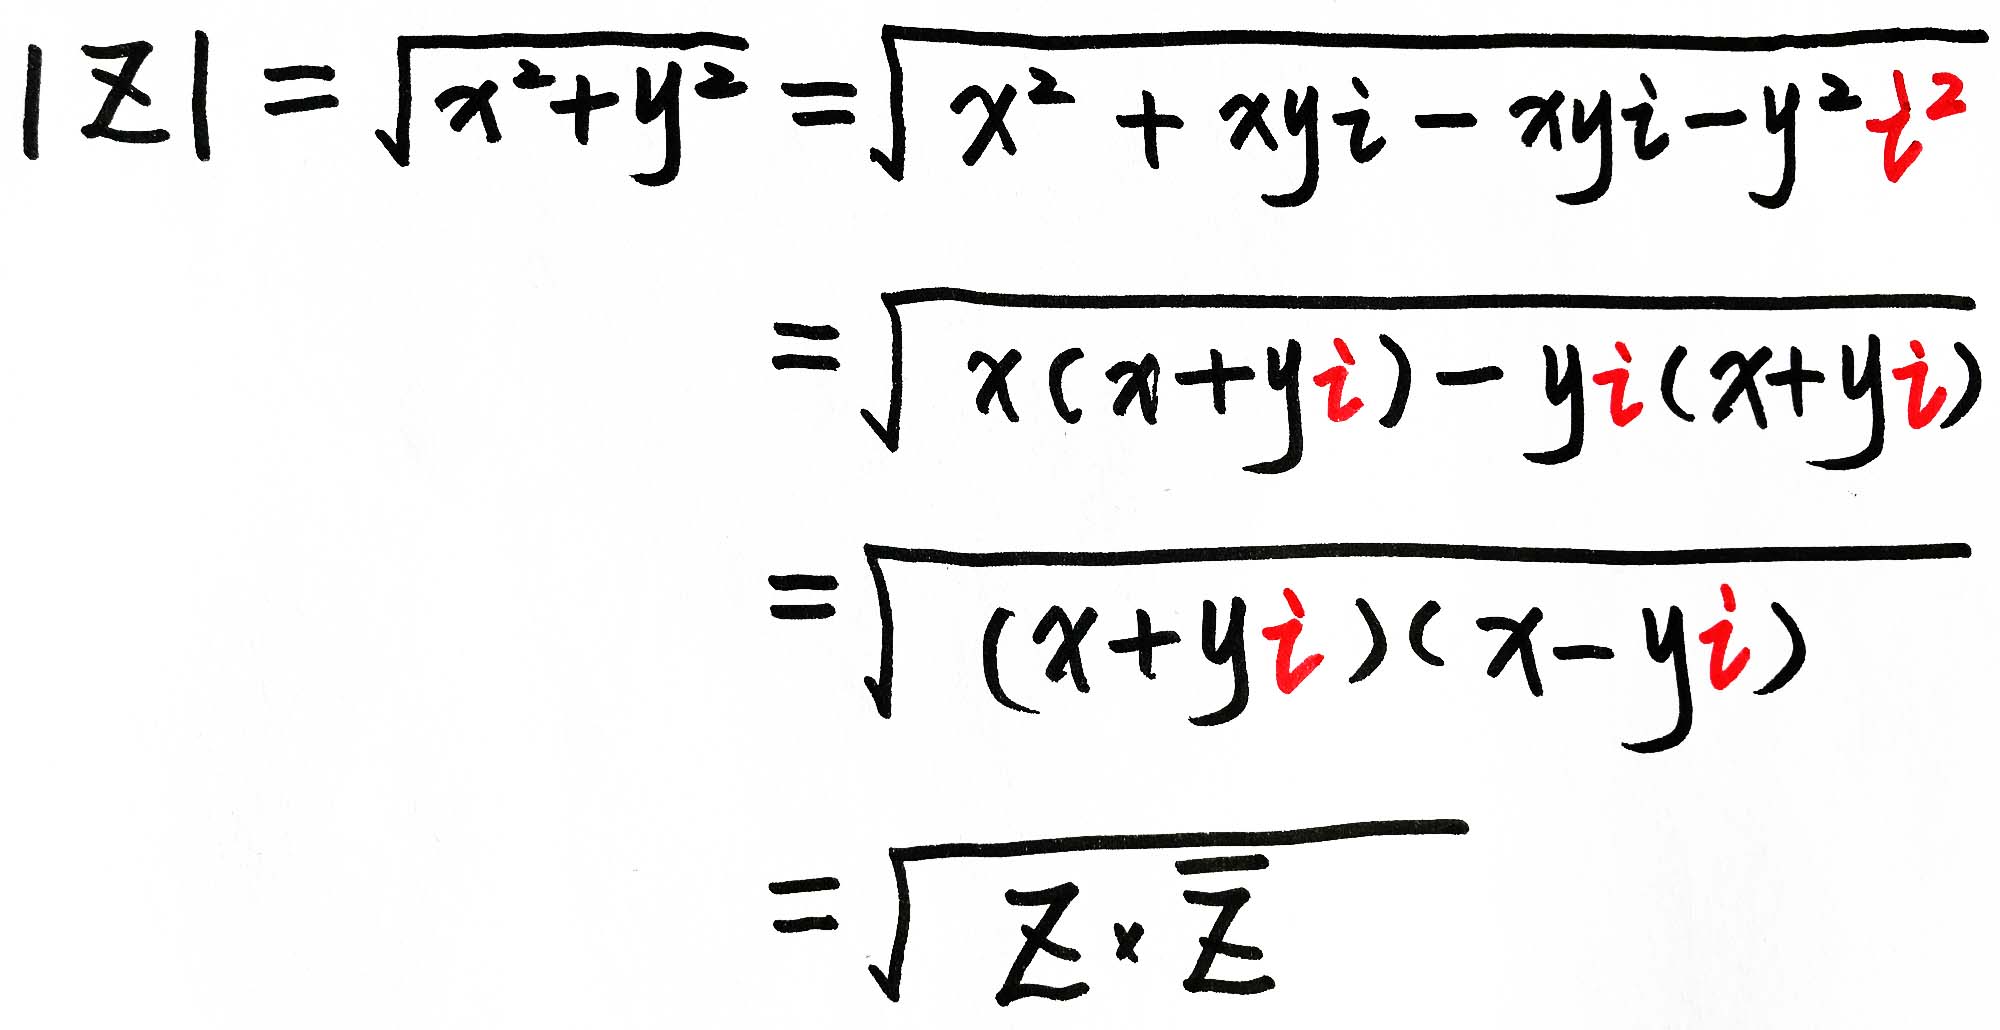 |z| = √(x²+y²) = √(x² + xyi - xyi - y²i²)
= √(x(x+yi) - yi(x+yi))
= √((x+yi)(x-yi))
= √(z × z̅)